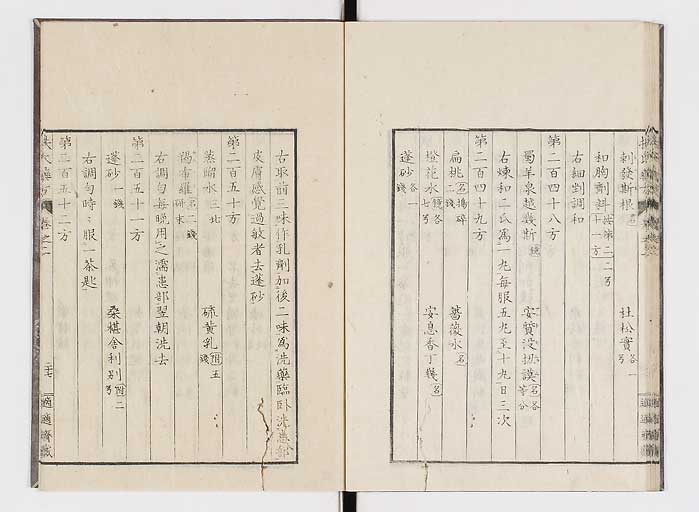 刺發斯根 杜松實 各一
和胸劑料 十一方
右細剉調和
第二百四十八方
蜀羊泉越幾斯 安質没扨謨 各等分
右煉和二氏為一丸每服五丸至十丸日三次
第二百四十九方
扁桃 搗碎 薔薇水
橙花水 各七 安息香丁幾
蓬砂 各一錢
右取前三味作乳劑加後二味為洗藥臨臥洗患部
皮膚感覺過敏者去蓬砂
第二百五十方
蒸餾水 三 硫黃乳 五錢
偈布羅 二錢
右調勻每晚用之濡患部翌朝洗去
第二百五十一方
蓬砂 一錢 桑椹舍利別 二
右調勻時〻服一茶匙
第二百五十二方
扶氏藥方 卷之二
二十七
適適齋藏